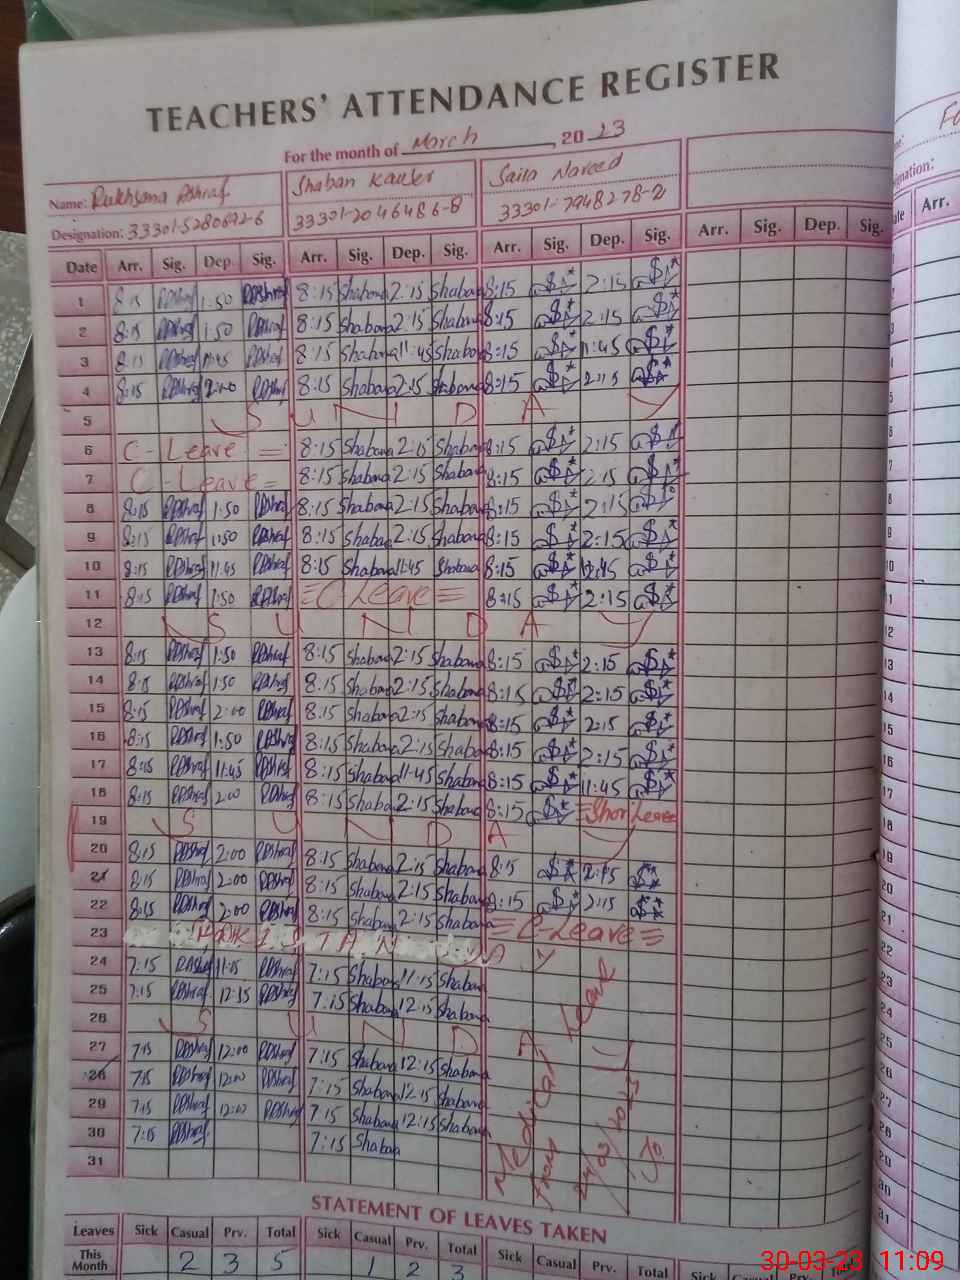 TEACHERS' ATTENDANCE REGISTER
For the month of March, 2023
Name: Rukhsana Ashraf Shaban Kauser Saira Naveed
Designation: 33301-5280692-6 33301-2046486-8 33301-7948278-2
Date Arr. Sig. Dep. Sig. Arr. Sig. Dep. Sig. Arr. Sig. Dep. Sig. Arr. Sig. Dep. Sig. Arr.
1 8:15 1:50 8:15 Shabana 2:15 Shabana 8:15 2:15
2 8:15 1:50 8:15 Shabana 2:15 Shabana 8:15 2:15
3 8:15 11:45 8:15 Shabana 11:45 Shabana 8:15 11:45
4 8:15 2:00 8:15 Shabana 2:15 Shabana 8:15 2:15
5 S U N D A Y
6 C-Leave 8:15 Shabana 2:15 Shabana 8:15 2:15
7 C-Leave 8:15 Shabana 2:15 Shabana 8:15 2:15
8 8:15 1:50 8:15 Shabana 2:15 Shabana 8:15 2:15
9 8:15 1:50 8:15 Shabana 2:15 Shabana 8:15 2:15
10 8:15 11:45 8:15 Shabana 11:45 Shabana 8:15
11 8:15 1:50 C-Leave 8:15 2:15
12 S U N D A Y
13 8:15 1:50 8:15 Shabana 2:15 Shabana 8:15 2:15
14 8:15 1:50 8:15 Shabana 2:15 Shabana 8:15 2:15
15 8:15 2:00 8:15 Shabana 2:15 Shabana 8:15 2:15
16 8:15 1:50 8:15 Shabana 2:15 Shabana 8:15 2:15
17 8:15 11:45 8:15 Shabana 11:45 Shabana 8:15 11:45
18 8:15 2:00 8:15 Shabana 2:15 Shabana 8:15 Short Leave
19 S U N D A Y
20 8:15 2:00 8:15 Shabana 2:15 Shabana 8:15 2:15
21 8:15 2:00 8:15 Shabana 2:15 Shabana 8:15 2:15
22 8:15 2:00 8:15 Shabana 2:15 Shabana C-Leave
23 PAKISTAN DAY
24 7:15 11:15 7:15 Shabana 11:15 Shabana
25 7:15 12:15 7:15 Shabana 12:15 Shabana
26 S U N D A Y
27 7:15 12:00 7:15 Shabana 12:15 Shabana
28 7:15 12:00 7:15 Shabana 12:15 Shabana
29 7:15 12:00 7:15 Shabana 12:15 Shabana
30 7:15 7:15 Shabana
31
Medical Leave
from
24/03/2023
to
STATEMENT OF LEAVES TAKEN
Leaves Sick Casual Prv. Total Sick Casual Prv. Total Sick Casual Prv. Total Sick Casual Prv. Total
This Month 2 3 5 1 2 3
30-03-23 11:09